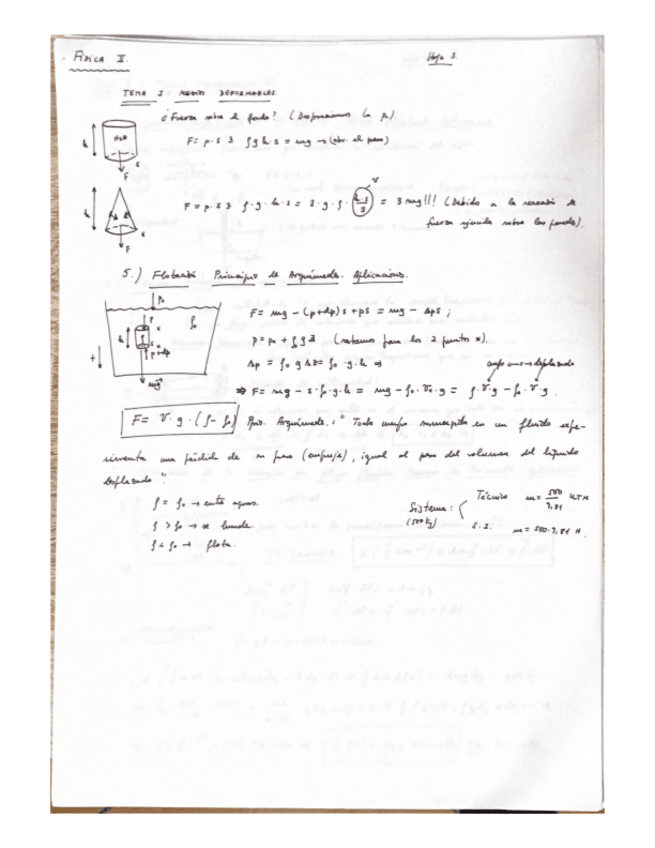 FÍSICA II.
Hoja 3.
TEMA I: MEDIOS DEFORMABLES.
¿Fuerza sobre el fondo? (Despreciamos la p₀).
h
H₂O
s
F
F = p·s = ρ g h·s = mg → (obv. el peso)
h
s
F
F = p·s = ρ·g·h·s = 3·g·ρ·(h·s/3) = 3mg!!! (Debido a la reacción de
V
fuerza ejercida sobre las paredes).
5.) Flotación. Principio de Arquímedes. Aplicaciones.
p₀
p
x
ρ₀
h
s
x
p+Δp
+
mg
F = mg - (p+Δp)s + ps = mg - Δps;
p = p₀ + ρ₀ g z (notamos para los 2 puntos x).
Δp = ρ₀ g Δz = ρ₀·g·h ⇒
desplazado
⇒ F = mg - s·ρ₀·g·h = mg - ρ₀·V₀·g = ρ·V·g - ρ₀·V·g.
F = V·g·(ρ-ρ₀)
Arquímedes: "Todo cuerpo sumergido en un fluido expe-
rimenta una pérdida de su peso (empuje), igual al peso del volumen del líquido
desplazado".
ρ = ρ₀ → entre aguas.
ρ > ρ₀ → se hunde.
ρ < ρ₀ → flota.
Sistema:
(500 kg)
Técnico m = 500/9,81 U.T.M
S.I. m = 500·9,81 N.